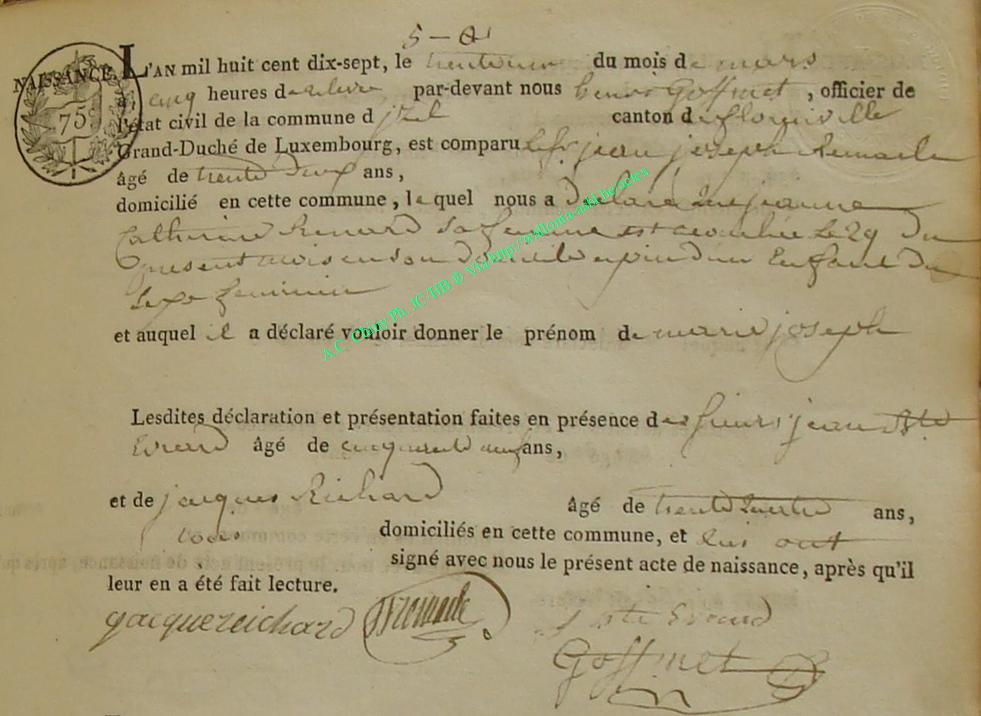 5 -
NAISSANCE.
75c
L'AN mil huit cent dix-sept, le trente un du mois de mars
à cinq heures de relevé, par-devant nous Goffinet, officier de
l'état civil de la commune d jzel canton de florenville
Grand-Duché de Luxembourg, est comparu le sr jean joseph Remacle
âgé de trente deux ans,
domicilié en cette commune, lequel nous a déclaré que jeanne
Catherine Renard sa femme est accouchée le 29 du
present mois en son domicile d'un Enfant du
sexe feminin
et auquel il a déclaré vouloir donner le prénom de marie joseph
Lesdites déclaration et présentation faites en présence des sieurs jean Bte
Evrard âgé de cinquante neuf ans,
et de jacques Richard âgé de trente quatre ans,
tous domiciliés en cette commune, et qui ont
signé avec nous le présent acte de naissance, après qu'il
leur en a été fait lecture.
jacque richard
j bte Evrard
Goffinet